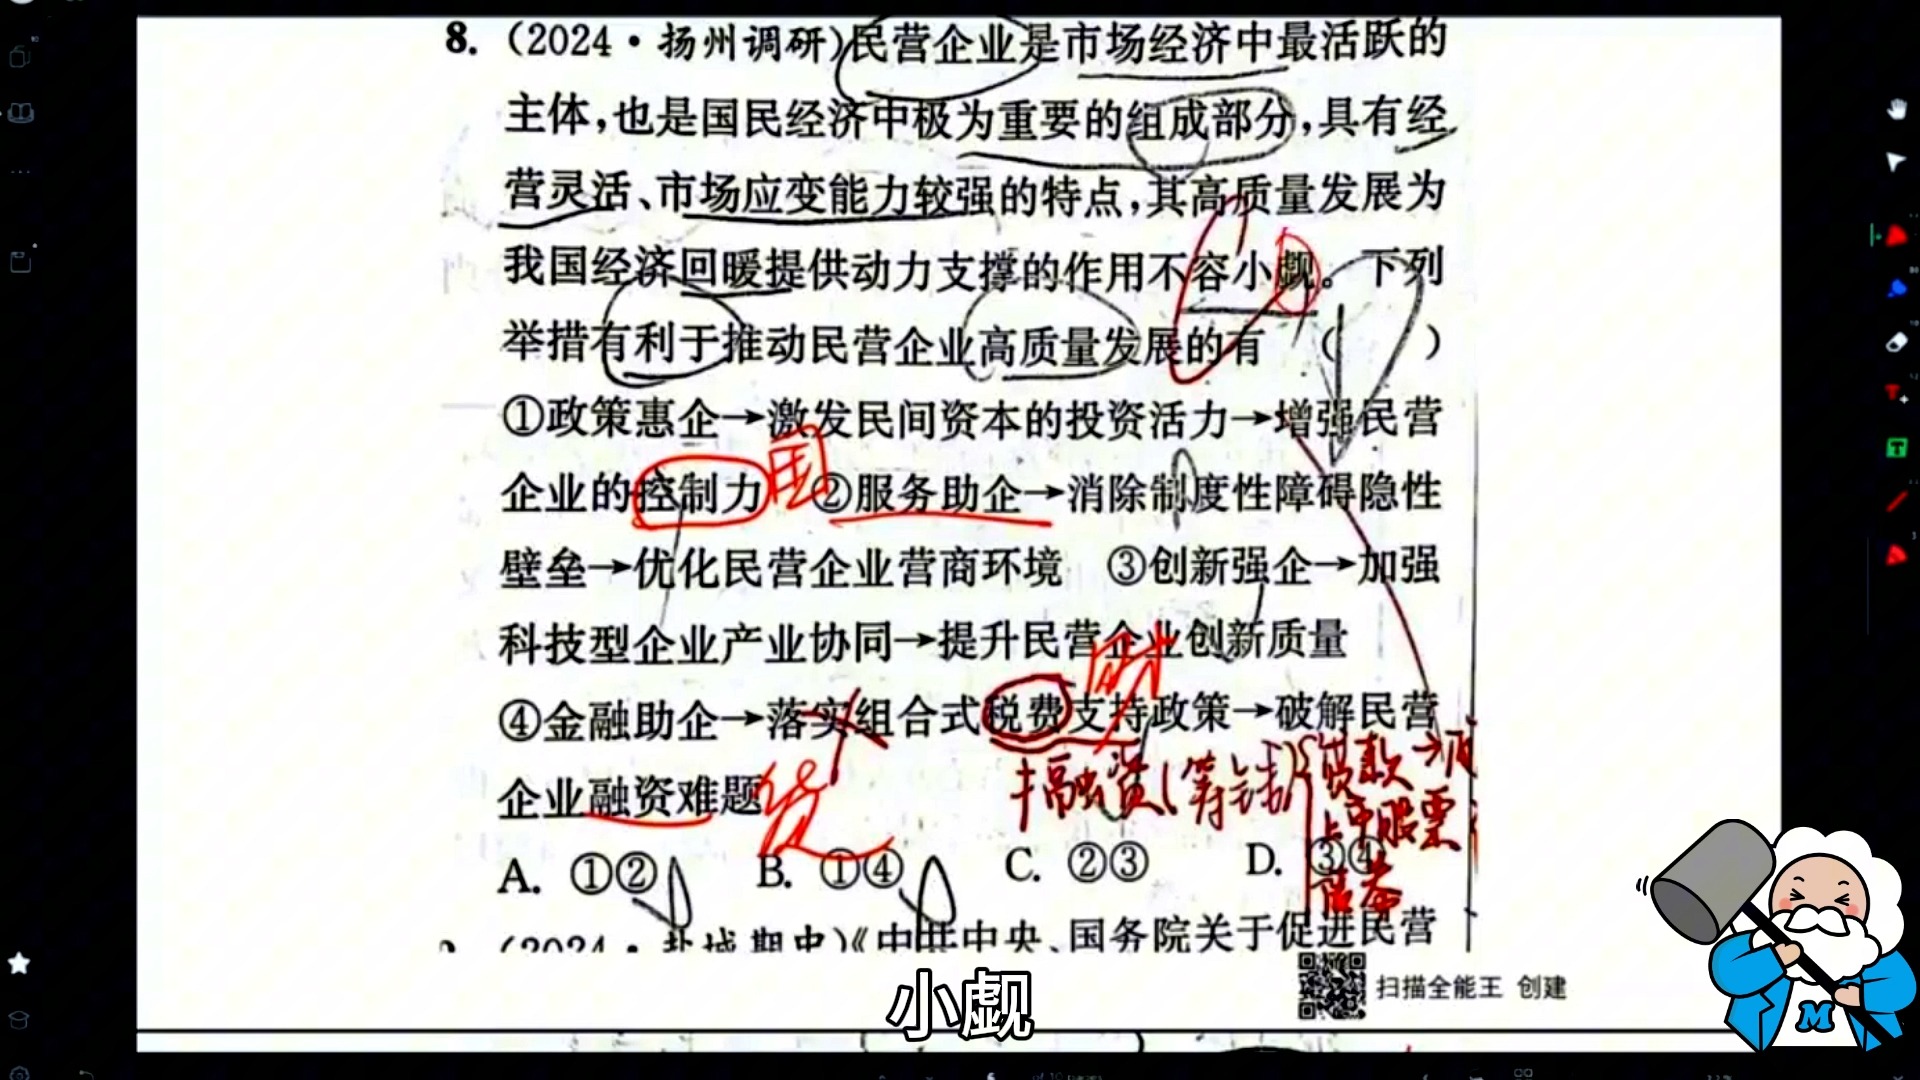 8.(2024·扬州调研)民营企业是市场经济中最活跃的
主体,也是国民经济中极为重要的组成部分,具有经
营灵活、市场应变能力较强的特点,其高质量发展为
我国经济回暖提供动力支撑的作用不容小觑。下列
举措有利于推动民营企业高质量发展的有 ( )
①政策惠企→激发民间资本的投资活力→增强民营
国
企业的控制力 ②服务助企→消除制度性障碍隐性
壁垒→优化民营企业营商环境 ③创新强企→加强
科技型企业产业协同→提升民营企业创新质量
财
④金融助企→落实组合式税费支持政策→破解民营
企业融资难题
货
融资(筹钱)
贷款
股票
A. ①② B. ①④ C. ②③ D. ③④
(2024·盐城期中)《中共中央、国务院关于促进民营
扫描全能王 创建
小觑
M